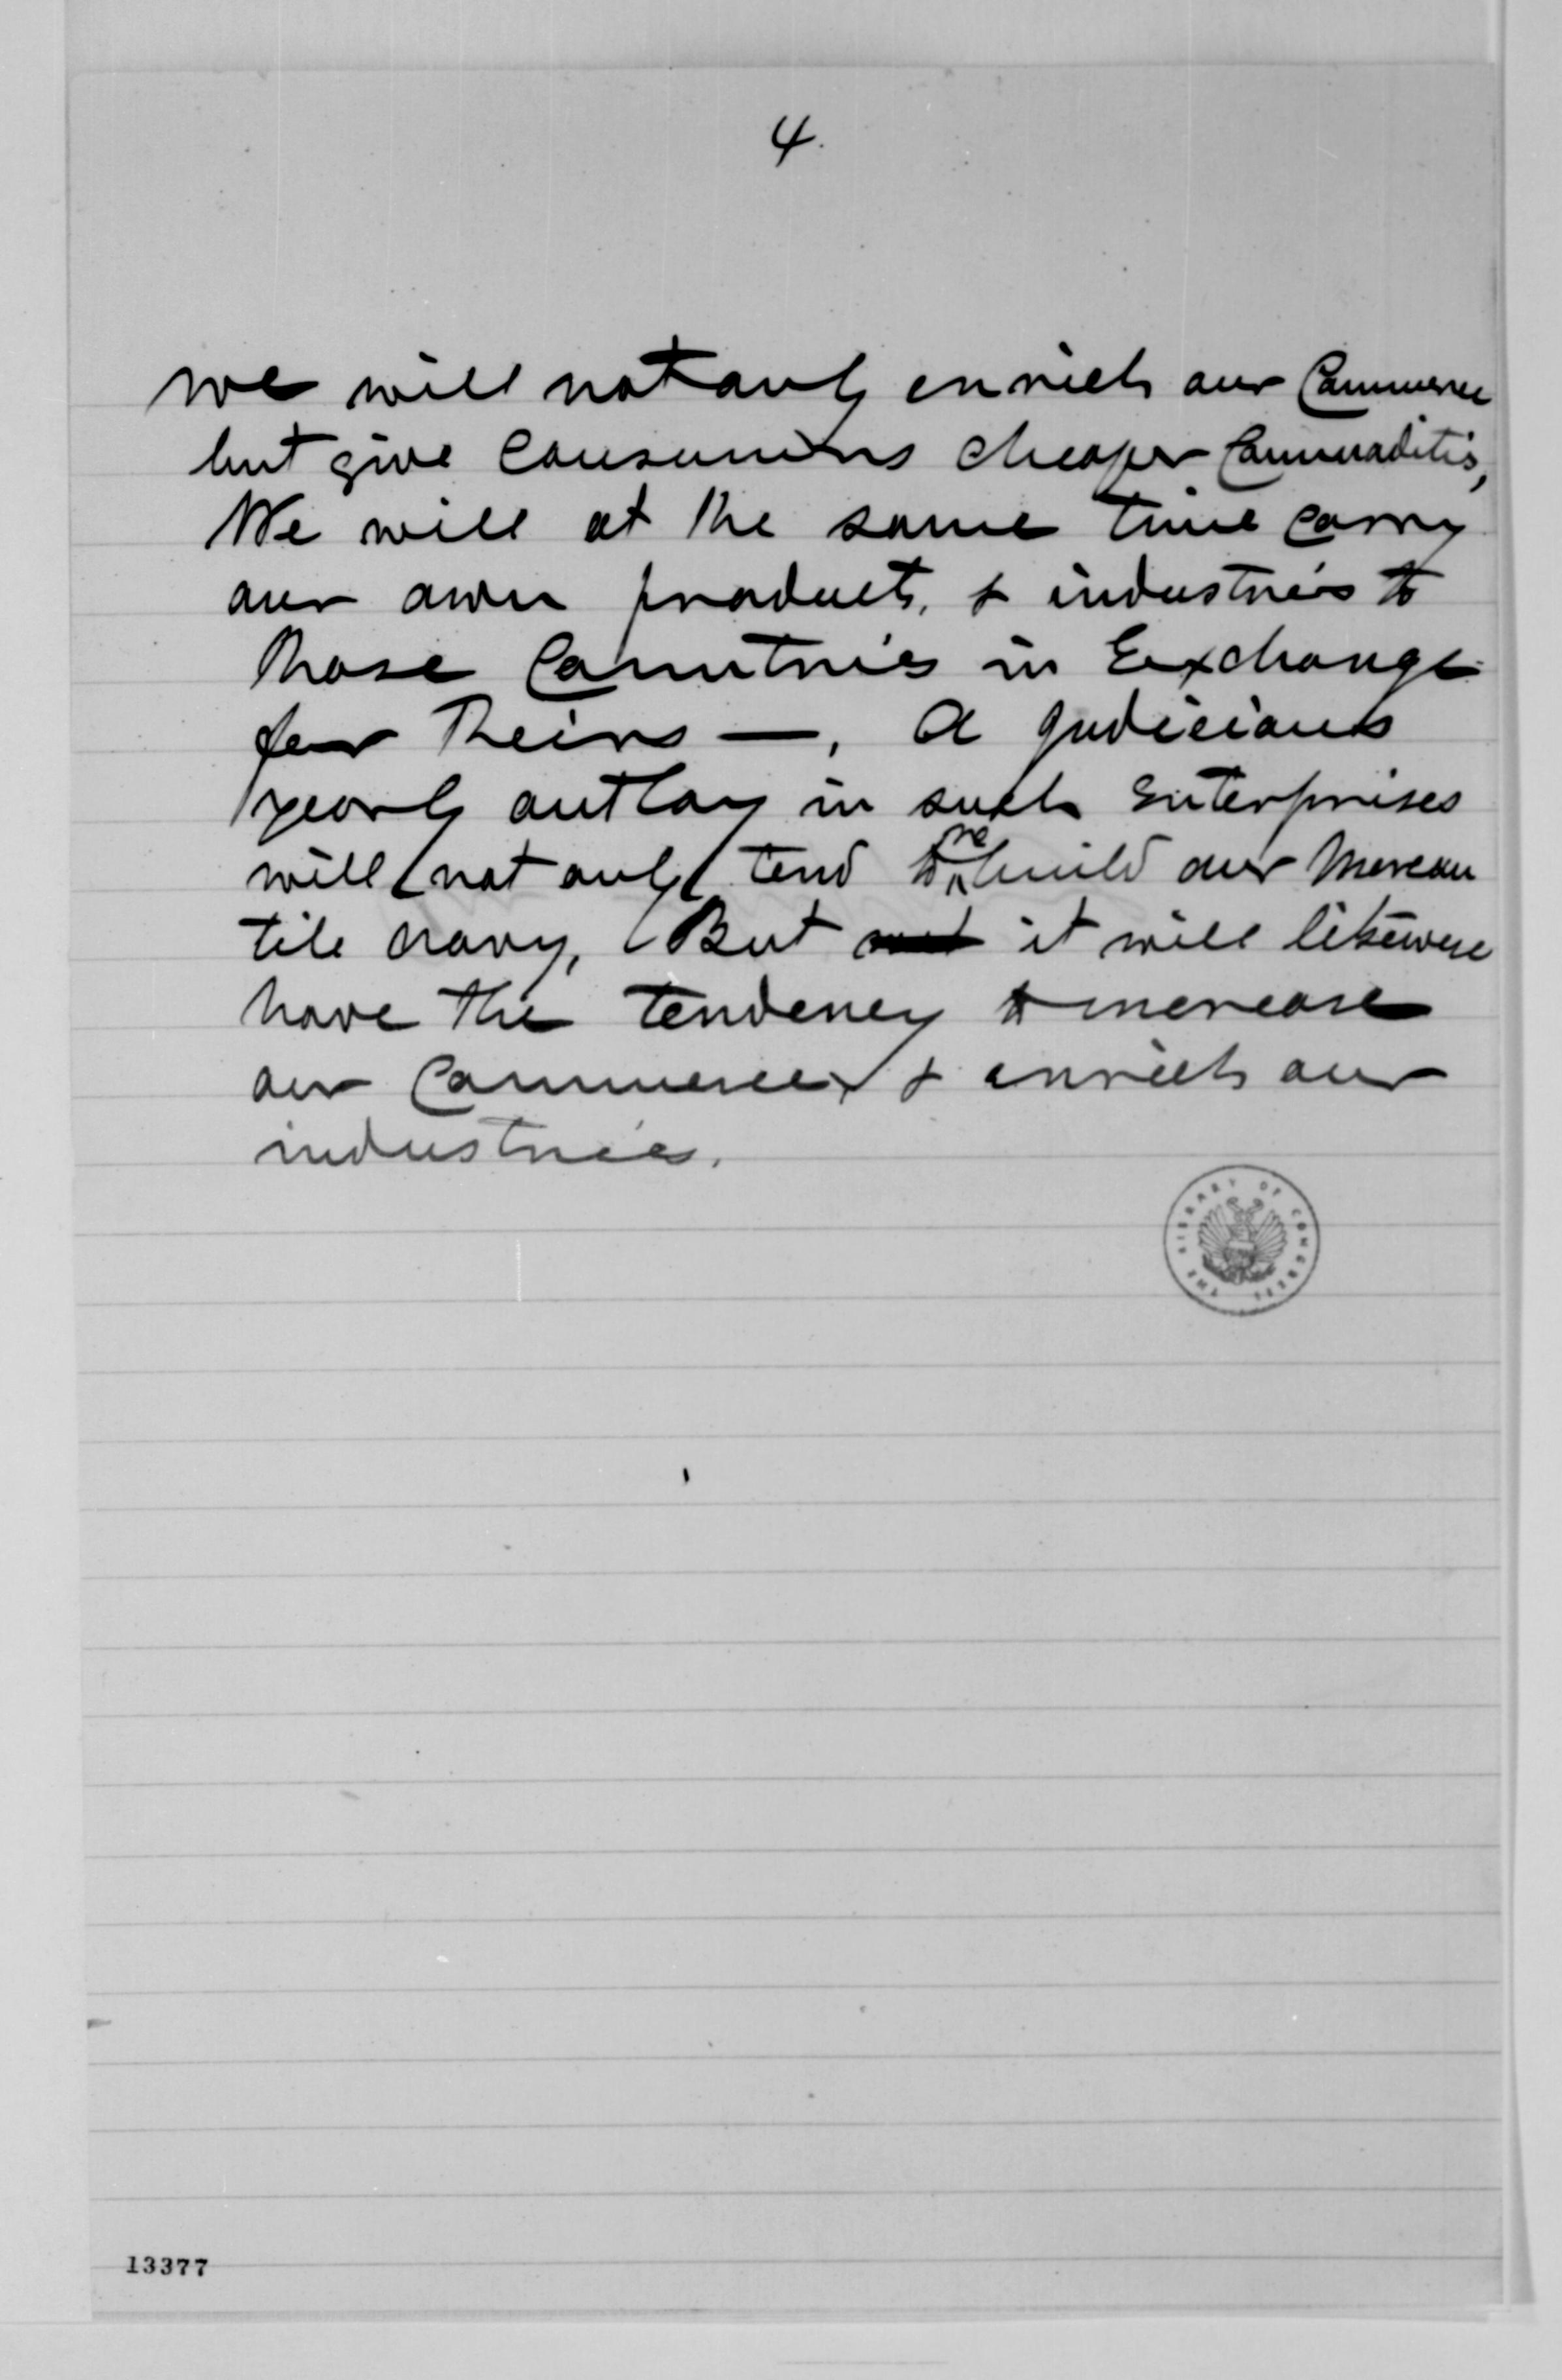 4.
we will not only enrich our Commerce
but give consumers cheaper Commodities,
We will at the same time carry
our own products, & industries to
those Countries in Exchange
for Theirs —, A judicious
yearly outlay in such Enterprises
will (not only( tend to ^re build our Mercan
tile navy, (But it will likewise
have the tendency to increase
our Commerce, & enrich our
industries.
THE LIBRARY OF CONGRESS
13377